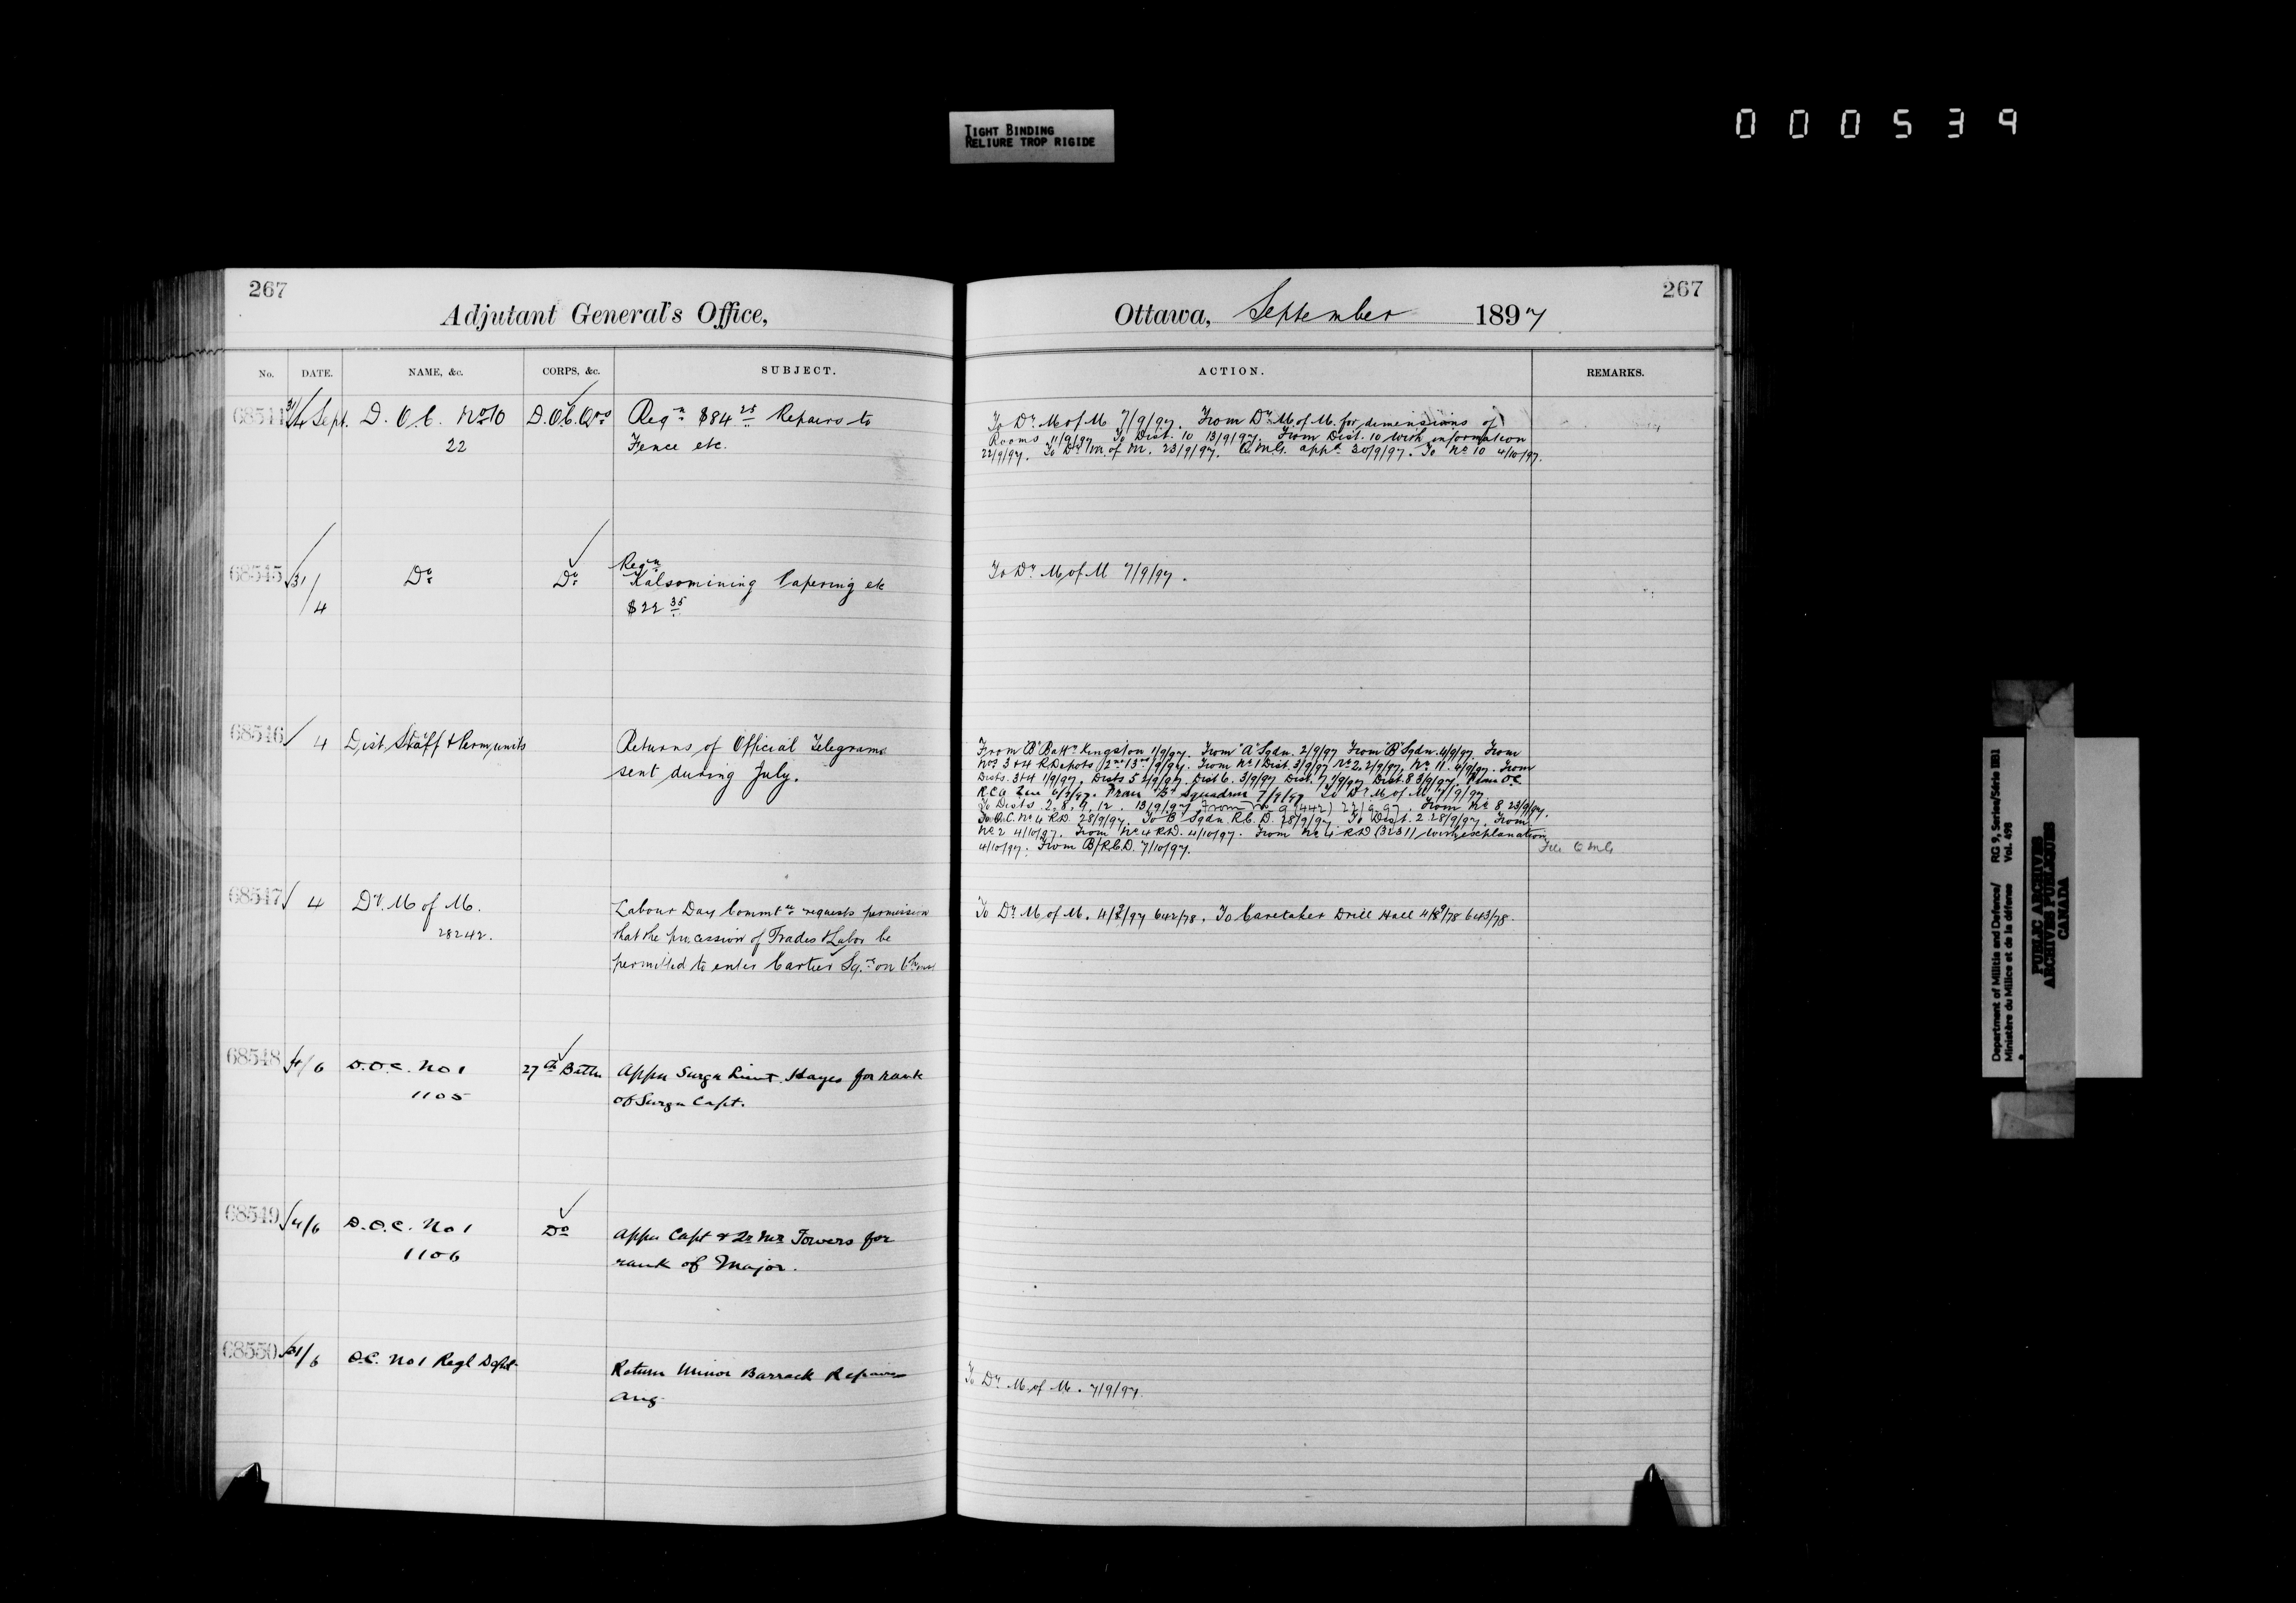 TIGHT BINDING
RELIURE TROP RIGIDE
000539
267
267
Adjutant General's Office,
Ottawa, September 1897
No. DATE. NAME, &c. CORPS, &c. SUBJECT. ACTION. REMARKS.
68544 31/4 Sept. D. O. C. No 10 D.O.C. Qrs Reqn $84 25 Repairs to
22 Fence etc.
To Dy. M of M 7/9/97. From Dy. M of M. for dimensions of
Rooms 11/9/97 To Dist. 10 13/9/97. From Dist. 10 with information
22/9/97. To Dy. M. of M. 23/9/97. Q.M.G. appd. 30/9/97. To No. 10 4/10/97.
68545 31/4 Do Do Reqn
Kalsomining Papering etc
$22 35
To Dy. M of M 7/9/97.
68546 4 Dist. Staff & Perm. units Returns of Official Telegrams
sent during July.
From "B" Batty. Kingston 1/9/97. From "A" Sqdn. 2/9/97 From "B" Sqdn. 4/9/97. From
Nos 3 & 4 R Depots 1/9/97. From No. 1 Dist. 3/9/97 No. 2. 2/9/97, No. 11. 4/9/97. From
Dists. 3 & 4 1/9/97. Dists 5 2/9/97. Dist 6. 3/9/97 Dist. 7 1/9/97 Dist. 8 3/9/97. From O.C.
R.C.A Que 6/9/97. From "B" Squadron 7/9/97 To Dy. M of M 7/9/97
To Dists. 2. 8. 9. 12. 13/9/97 From No. 9 22/9/97. From No. 8 23/9/97.
To O.C. No. 4 R.D. 28/9/97. To B Sqdn. R.C.D. 28/9/97. To Dist. 2 28/9/97. From
No. 2 4/10/97. From No. 4 R.D. 4/10/97. From No. 4 R.D with explanation
4/10/97. From B/R.C.D. 7/10/97.
68547 4 Dy. M of M. Labour Day Committee requests permission
28242. that the procession of Trades & Labor be
permitted to enter Cartier Sq. on 6th
To Dy. M of M. 4/9/97 642/78. To Caretaker Drill Hall 643/78.
68548 4/6 D.O.C. No 1 27th Battn Appn Surgn Lieut. Hayes for rank
1105 of Surgn Capt.
68549 4/6 D.O.C. No 1 Do Appn Capt & Qr Mr Towers for
1106 rank of Major.
68550 31/6 O.C. No 1 Regl Depot. Return Minor Barrack Repairs
Aug.
To Dy. M of M. 7/9/97.
Department of Militia and Defence/
Ministère du Milice et de la défense
RG 9, Series/Série IIB1
Vol. 498
PUBLIC ARCHIVES
ARCHIVES PUBLIQUES
CANADA